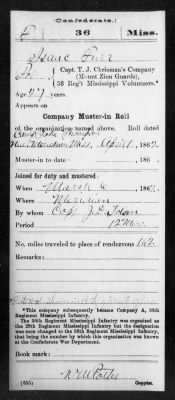 (Confederate.)
F 36 Miss.
Isaac Furr
Pvt, Capt. T. J. Chrisman's Company
(Mount Zion Guards),
36 Reg't Mississippi Volunteers.*
Age 27 years.
Appears on
Company Muster-in Roll
of the organization named above. Roll dated
Miss, April, 1862
Muster-in to date, 186 .
Joined for duty and mustered:
When March 6, 1862.
Where Meridian
By whom Capt.
Period 12 Mos.
No. miles traveled to place of rendezvous 162
Remarks:
*This company subsequently became Company A, 36th
Regiment Mississippi Infantry.
The 36th Regiment Mississippi Infantry was organized as
the 28th Regiment Mississippi Infantry but the designation
was soon changed to the 36th Regiment Mississippi Infantry,
that being the number by which this organization was known
at the Confederate War Department.
Book mark:
(635) Copyist.